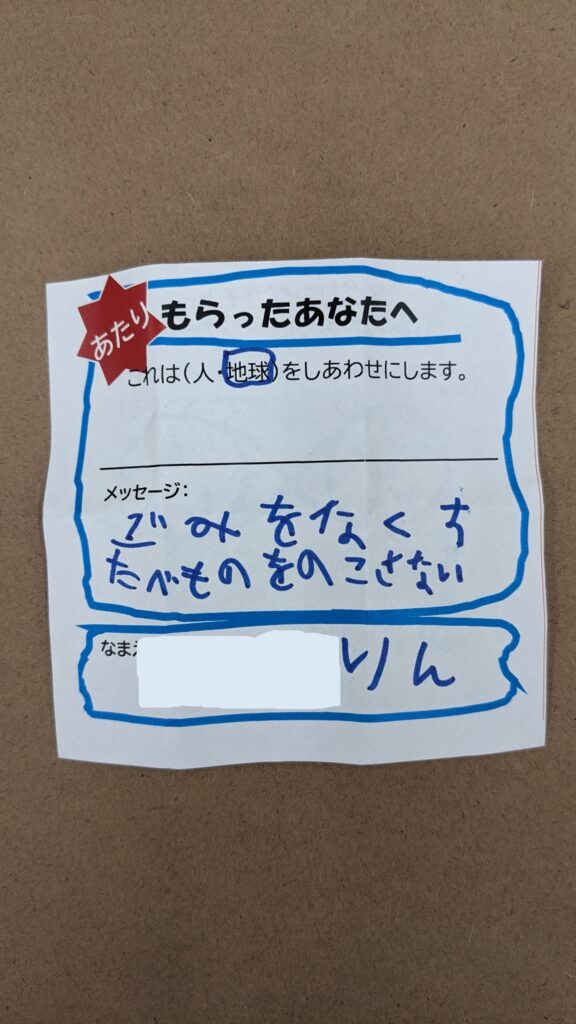 あたり
もらったあなたへ
これは(人・地球)をしあわせにします。
メッセージ:
ごみをなくす
たべものをのこさない
なまえ
りん